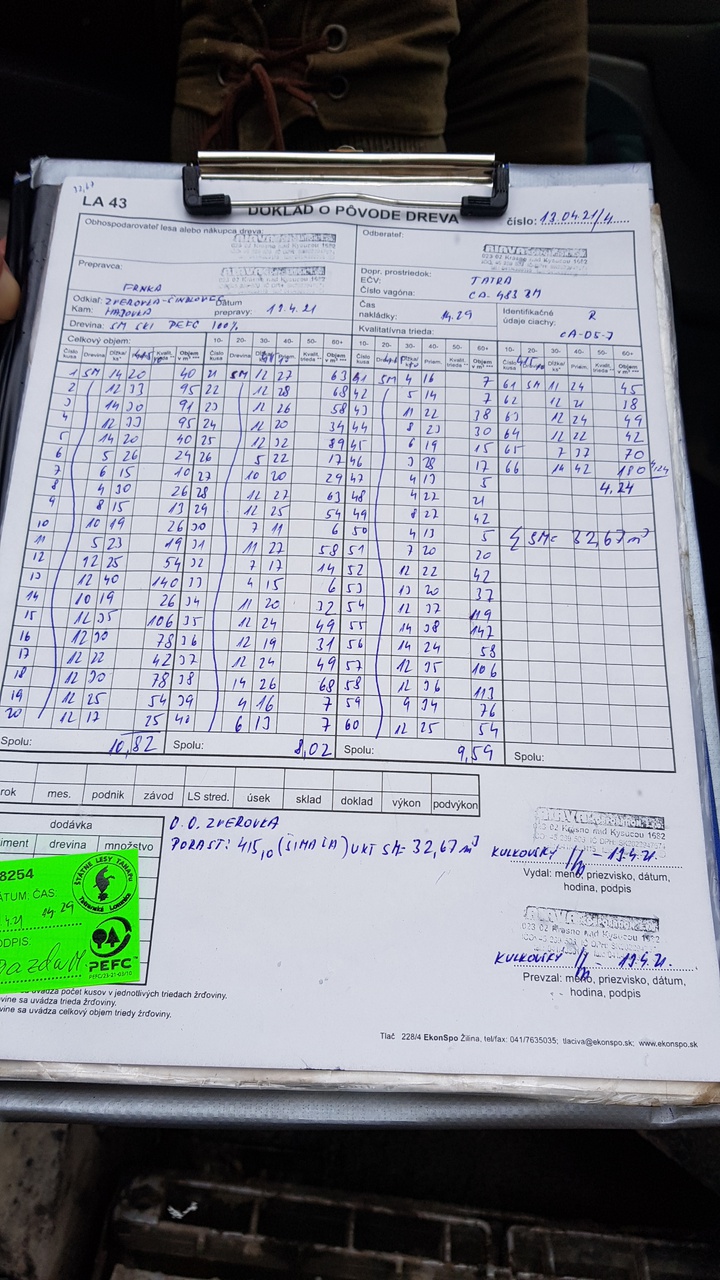 12,67
LA 43
DOKLAD O PÔVODE DREVA
číslo: 19.04.21/4
Obhospodarovateľ lesa alebo nákupca dreva:
023 02 Krásno nad Kysucou 1582
Odberateľ:
023 02 Krásno nad Kysucou 1582
Prepravca:
FRNKA
Dopr. prostriedok:
EČV: TATRA
Číslo vagóna: CA-483BM
Odkiaľ: ZVEROVKA-
Kam:
Dátum prepravy: 19.4.21
Čas nakládky: 14.29
Identifikačné údaje ciachy: R
CA-05-7
Drevina: SM PEFC 100%
Kvalitatívna trieda:
Celkový objem: 10- 20- 30- 40- 50- 60+ 10- 20- 30- 40- 50- 60+ 10- 20- 30- 40- 50- 60+
Číslo kusa Drevina Dĺžka/ks* Kvalit. trieda ** Objem v m³ ***
1 SM 14 20 40 21 SM 12 27 63 41 SM 4 16 7 61 SM 11 24 45
2 12 33 95 22 12 28 68 42 5 14 7 62 12 21 18
3 14 30 91 23 12 26 58 43 11 22 38 63 12 24 49
4 12 33 95 24 12 20 34 44 8 23 30 64 12 22 42
5 14 20 40 25 12 32 89 45 6 19 15 65 7 37 70
6 5 26 24 26 5 22 17 46 3 28 17 66 14 42 180 4,24
7 6 15 10 27 10 20 29 47 4 13 5 4,24
8 4 30 26 28 12 27 63 48 4 27 21
9 8 15 13 29 12 25 54 49 8 27 42
10 10 19 26 30 7 11 6 50 4 13 5 ∑ SM= 32,67 m³
11 5 23 19 31 11 27 58 51 7 20 20
12 12 25 54 32 7 17 14 52 12 22 42
13 12 40 140 33 4 15 6 53 13 20 37
14 10 19 26 34 11 20 32 54 12 37 119
15 12 35 106 35 12 24 49 55 14 38 147
16 12 30 78 36 12 19 31 56 14 24 58
17 12 22 42 37 12 24 49 57 12 35 106
18 12 30 78 38 14 26 68 58 12 36 113
19 12 25 54 39 4 16 7 59 9 34 76
20 12 17 25 40 6 13 7 60 12 25 54
Spolu: 10,82 Spolu: 8,02 Spolu: 9,59 Spolu:
rok mes. podnik závod LS stred. úsek sklad doklad výkon podvýkon
dodávka
drevina množstvo
O.O. ZVEROVKA
PORAST: 415,10 (ŠIMAĽA) UKT SM= 32,67 m³
023 02 Krásno nad Kysucou 1582
19.4.21.
Vydal: meno, priezvisko, dátum,
hodina, podpis
023 02 Krásno nad Kysucou 1582
19.4.21.
Prevzal: meno, priezvisko, dátum,
hodina, podpis
8254
ŠTÁTNE LESY TANAPU
Tatranská Lomnica
ÁTUM: ČAS:
4.21 14.29
ODPIS:
PEFC
uvádza počet kusov v jednotlivých triedach žrďoviny.
vine sa uvádza trieda žrďoviny.
vine sa uvádza celkový objem triedy žrďoviny.
Tlač 228/4 EkonSpo Žilina, tel/fax: 041/7635035; tlaciva@ekonspo.sk; www.ekonspo.sk